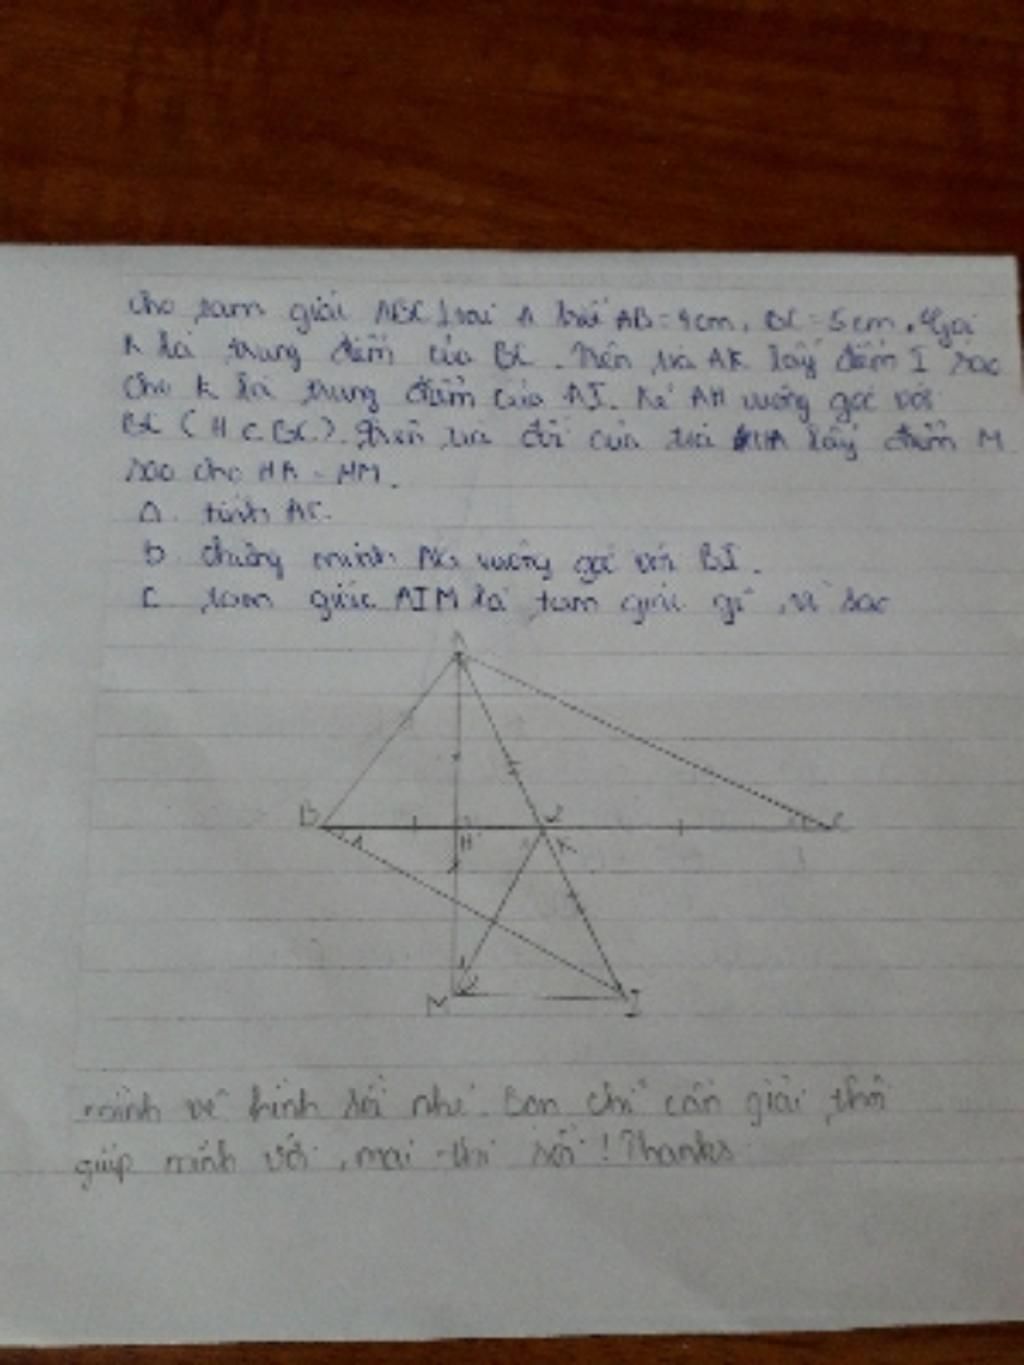 cho tam giác ABC tại A biết AB = 4cm, BC = 5cm. Gọi
K là trung điểm của BC. Trên tia AK lấy điểm I sao
cho K là trung điểm của AI. Kẻ AH vuông góc với
BC (H ∈ BC). Trên tia đối của tia HA lấy điểm M
sao cho HA = HM.
a. tính AC.
b. chứng minh vuông góc với BI.
c tam giác AIM là tam giác gì, vì sao
A
B H K C
M I
mình vẽ hình rồi nhé. Bạn chỉ cần giải thôi
giúp mình với, mai thi rồi! Thanks